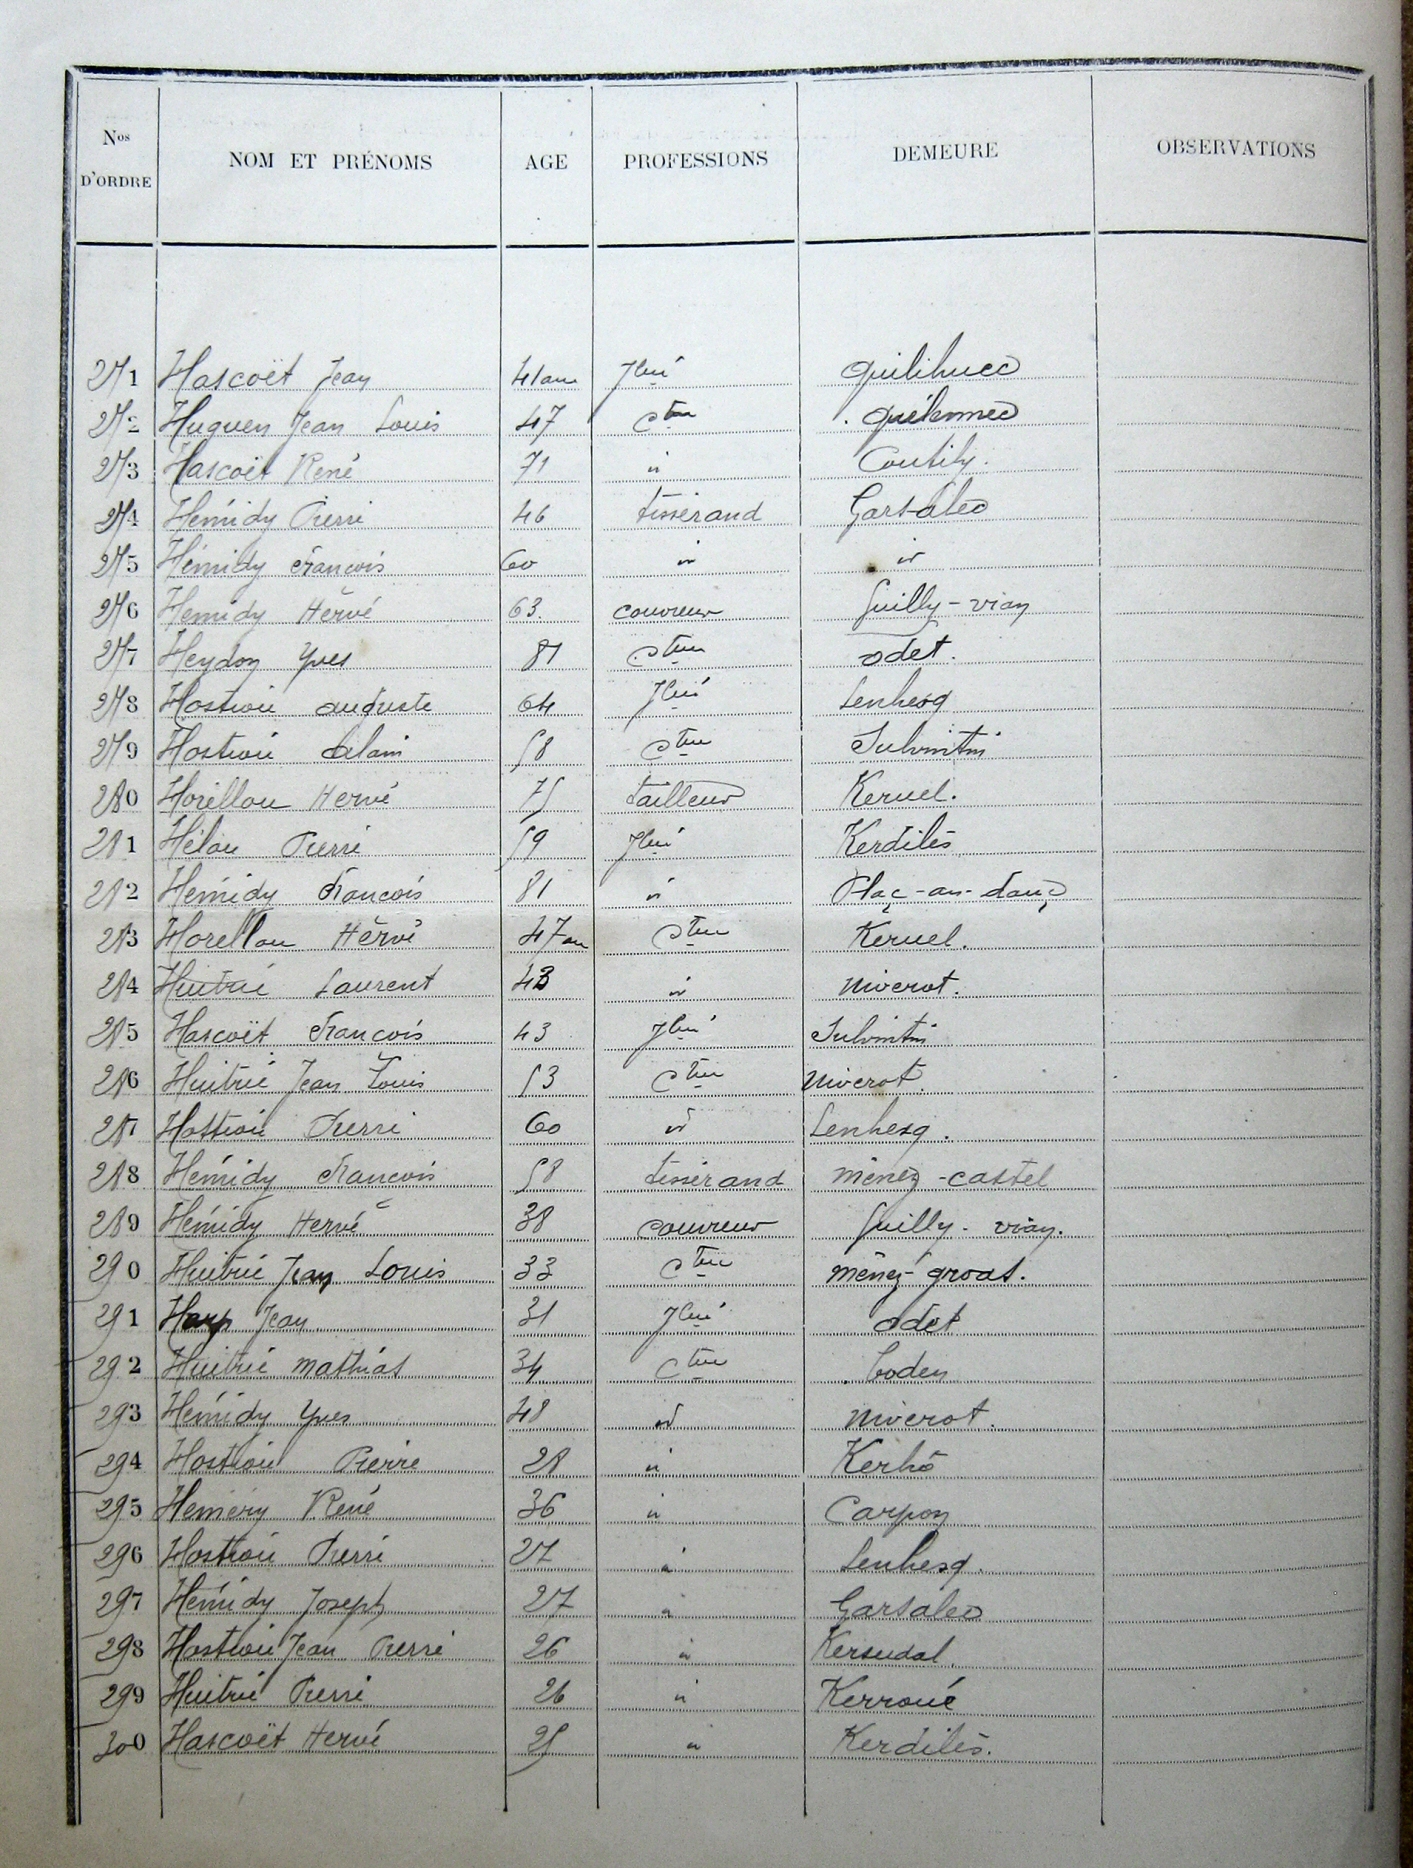 Nos D'ORDRE NOM ET PRÉNOMS AGE PROFESSIONS DEMEURE OBSERVATIONS
271 Hascoët Jean 41 ans Jlier Quilihuec
272 Huguen Jean Louis 47 cteur Quilihuec
273 Hascoët René 71 id Coutily.
274 Hémidy Pierre 46 tisserand Garsalec
275 Hémidy François 60 id id
276 Hémidy Hervé 63. couvreur Guilly-vian
277 Heydon Yves 81 cteur odet.
278 Hostiou auguste 64 Jlier Lenhesq
279 Hostiou alain 58 cteur Sulvintin
280 Horellou Hervé 75 tailleur Keruel.
281 Hélou Pierre 59 Jlier Kerdilès
282 Hémidy François 81 id
283 Horellou Hervé 47 ans cteur Keruel.
284 Huitric Laurent 43 id niverot.
285 Hascoët François 43 Jlier Sulvintin
286 Huitric Jean Louis 53 cteur niverot.
287 Hostiou Pierre 60 id Lenhesq.
288 Hémidy François 58 tisserand ménez-castel
289 Hémidy Hervé 38 couvreur Guilly-vian.
290 Huitric Jean Louis 33 cteur ménez-groas.
291 Jean 31 Jlier odet
292 Huitric mathias 34 cteur boden
293 Hémidy Yves 48 id niverot.
294 Hostiou Pierre 28 id Kerhô
295 Heméry René 36 id Carpon
296 Hostiou Pierre 27 id Lenhesq.
297 Hémidy Joseph 27 id Garsalec
298 Hostiou Jean Pierre 26 id Kersudal.
299 Huitric Pierre 26 id Kerroué
300 Hascoët Hervé 25 id Kerdilès.